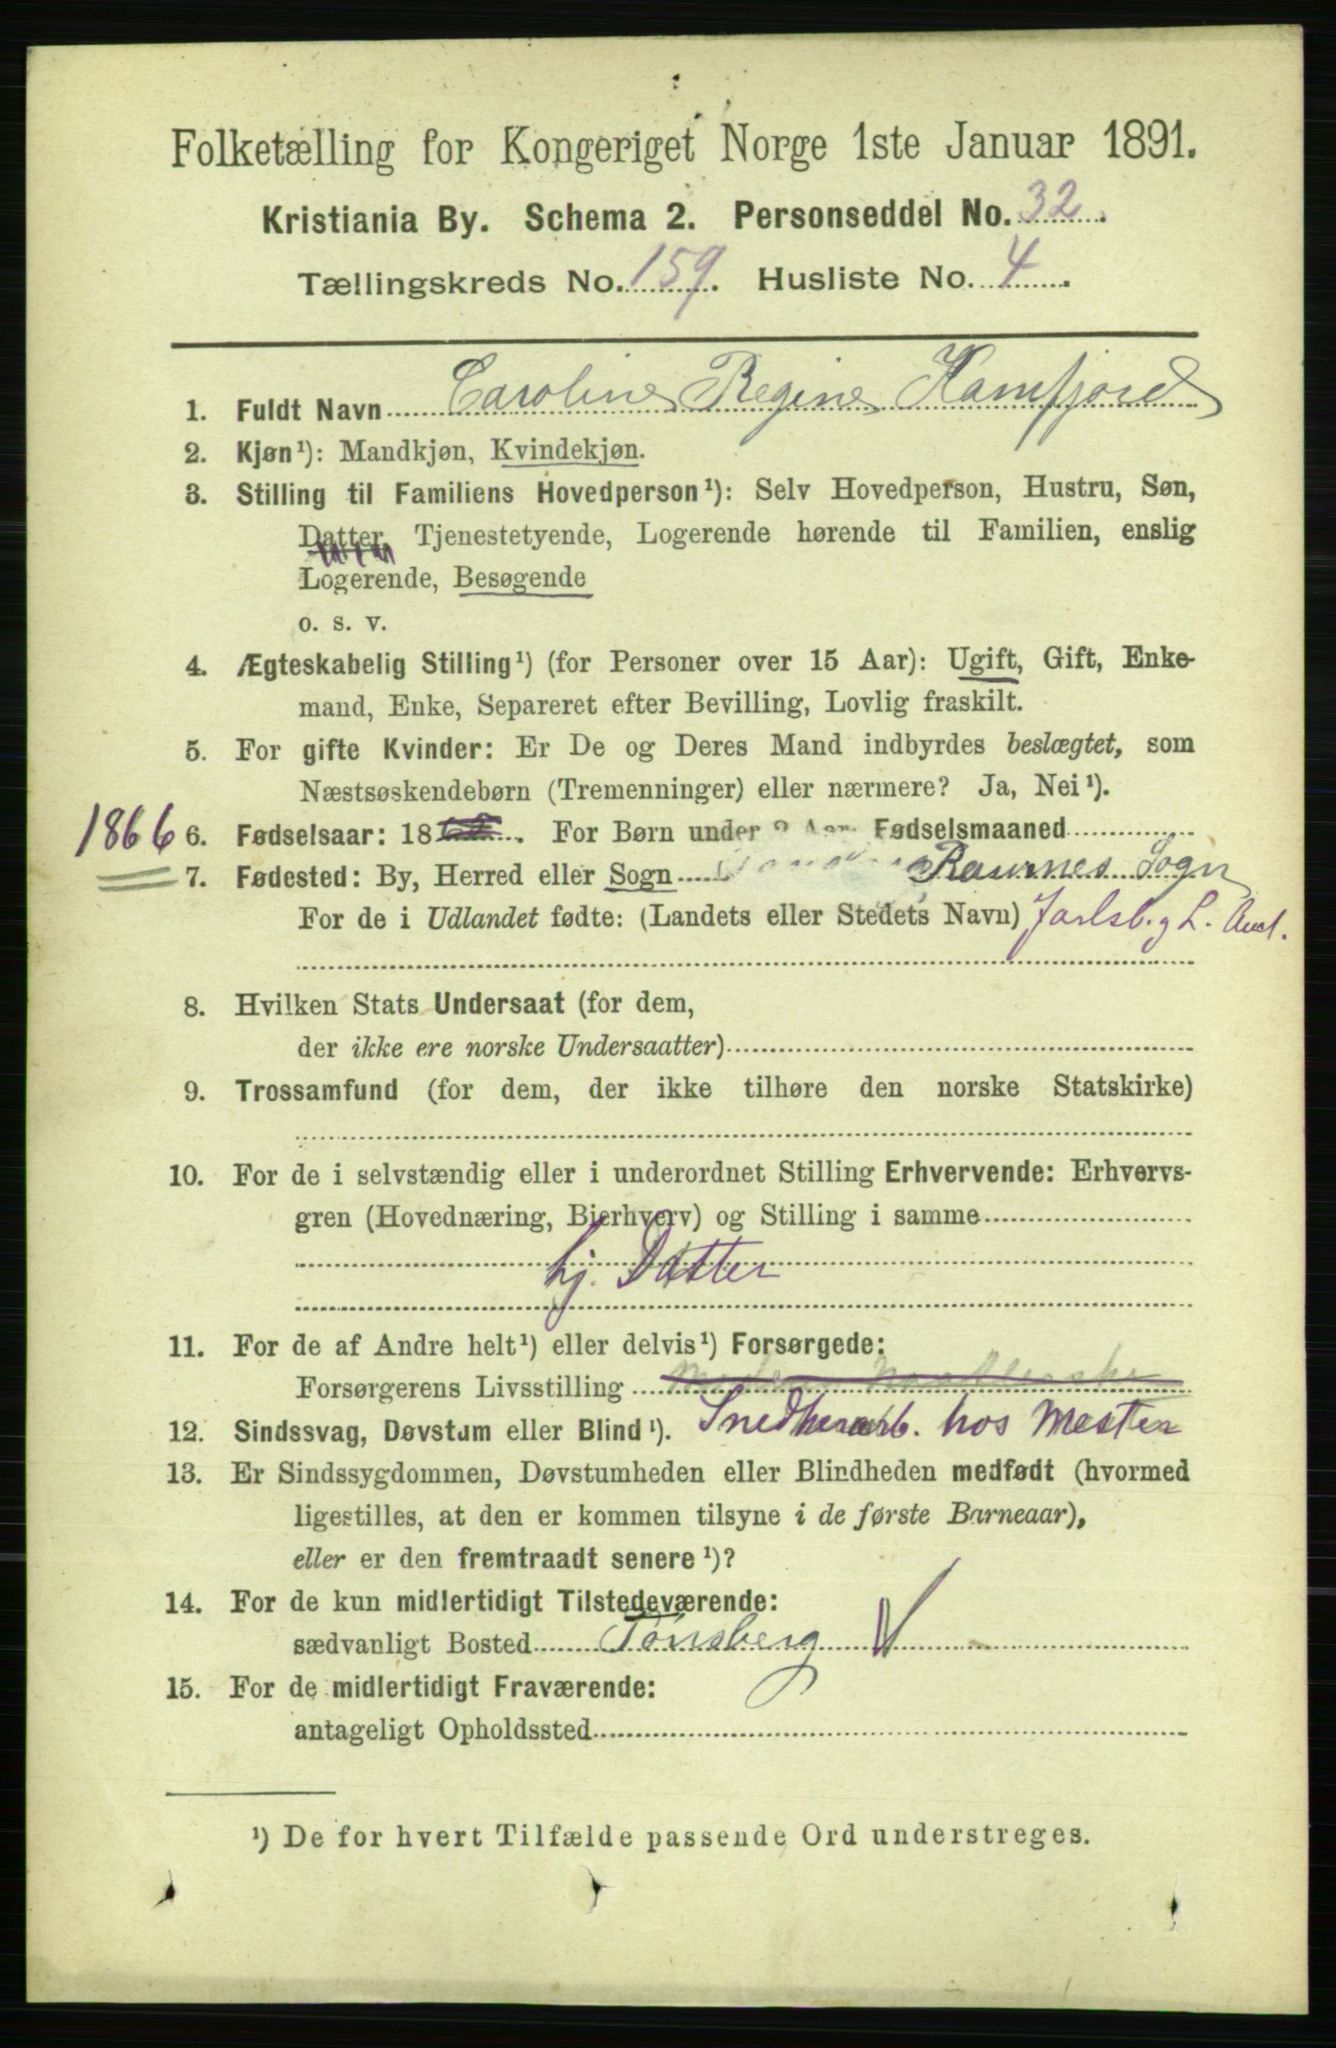 Folketælling for Kongeriget Norge 1ste Januar 1891.
Kristiania By. Schema 2. Personseddel No. 32.
Tællingskreds No. 159. Husliste No. 4.
1. Fuldt Navn Caroline Regine Kamfjord
2. Kjøn¹): Mandkjøn, Kvindekjøn.
3. Stilling til Familiens Hovedperson¹): Selv Hovedperson, Hustru, Søn,
Datter, Tjenestetyende, Logerende hørende til Familien, enslig
Logerende, Besøgende
o. s. v.
4. Ægteskabelig Stilling¹) (for Personer over 15 Aar): Ugift, Gift, Enke-
mand, Enke, Separeret efter Bevilling, Lovlig fraskilt.
5. For gifte Kvinder: Er De og Deres Mand indbyrdes beslægtet, som
Næstsøskendebørn (Tremenninger) eller nærmere? Ja, Nei¹).
1866 6. Fødselsaar: 18 . For Børn under 2 Aar: Fødselsmaaned
7. Fødested: By, Herred eller Sogn Raumes Sogn
For de i Udlandet fødte: (Landets eller Stedets Navn) Jarlsb. g L. Amt.
8. Hvilken Stats Undersaat (for dem,
der ikke ere norske Undersaatter)
9. Trossamfund (for dem, der ikke tilhøre den norske Statskirke)
10. For de i selvstændig eller i underordnet Stilling Erhvervende: Erhvervs-
gren (Hovednæring, Bierhverv) og Stilling i samme
hj. Datter
11. For de af Andre helt¹) eller delvis¹) Forsørgede:
Forsørgerens Livsstilling
12. Sindssvag, Døvstum eller Blind¹). Snedkerarb. hos Mester
13. Er Sindssygdommen, Døvstumheden eller Blindheden medfødt (hvormed
ligestilles, at den er kommen tilsyne i de første Barneaar),
eller er den fremtraadt senere¹)?
14. For de kun midlertidigt Tilstedeværende:
sædvanligt Bosted Tønsberg
15. For de midlertidigt Fraværende:
antageligt Opholdssted
¹) De for hvert Tilfælde passende Ord understreges.